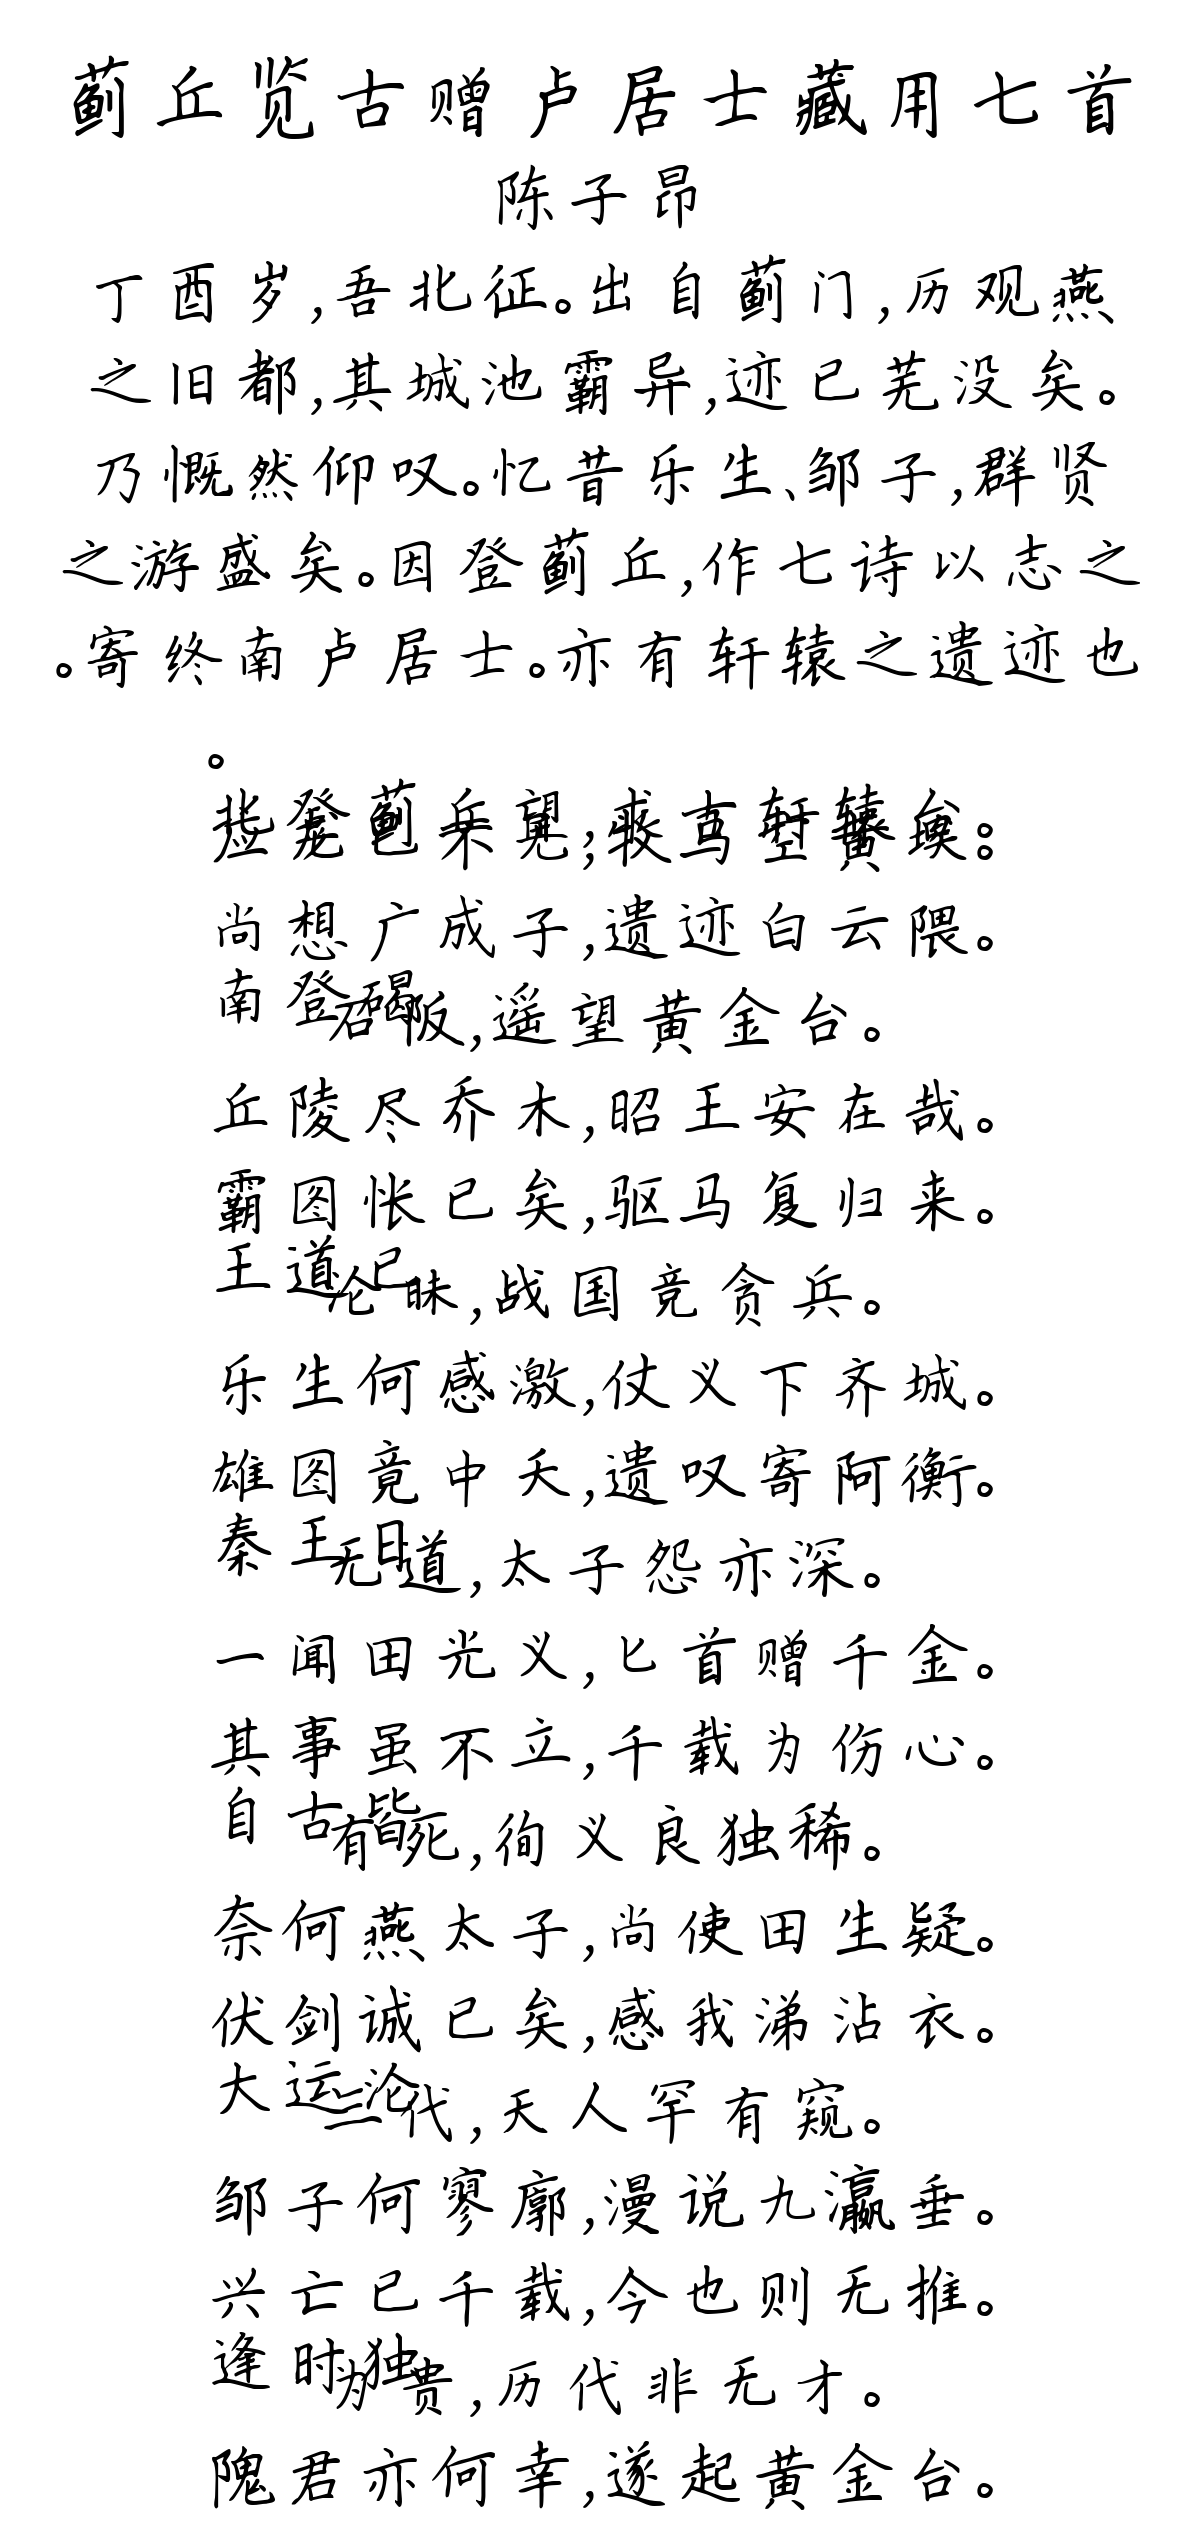 蓟丘览古赠卢居士藏用七首
陈子昂
丁酉岁,吾北征。出自蓟门,历观燕
之旧都,其城池霸异,迹已芜没矣。
乃慨然仰叹。忆昔乐生、邹子,群贤
之游盛矣。因登蓟丘,作七诗以志之
。寄终南卢居士。亦有轩辕之遗迹也
。
北登蓟丘望,求古轩辕台。
应龙已不见,牧马空黄埃。
尚想广成子,遗迹白云隈。
南登碣石阪,遥望黄金台。
丘陵尽乔木,昭王安在哉。
霸图怅已矣,驱马复归来。
王道已沦昧,战国竞贪兵。
乐生何感激,仗义下齐城。
雄图竟中夭,遗叹寄阿衡。
秦王日无道,太子怨亦深。
一闻田光义,匕首赠千金。
其事虽不立,千载为伤心。
自古皆有死,徇义良独稀。
奈何燕太子,尚使田生疑。
伏剑诚已矣,感我涕沾衣。
大运沦三代,天人罕有窥。
邹子何寥廓,漫说九瀛垂。
兴亡已千载,今也则无推。
逢时独为贵,历代非无才。
隗君亦何幸,遂起黄金台。